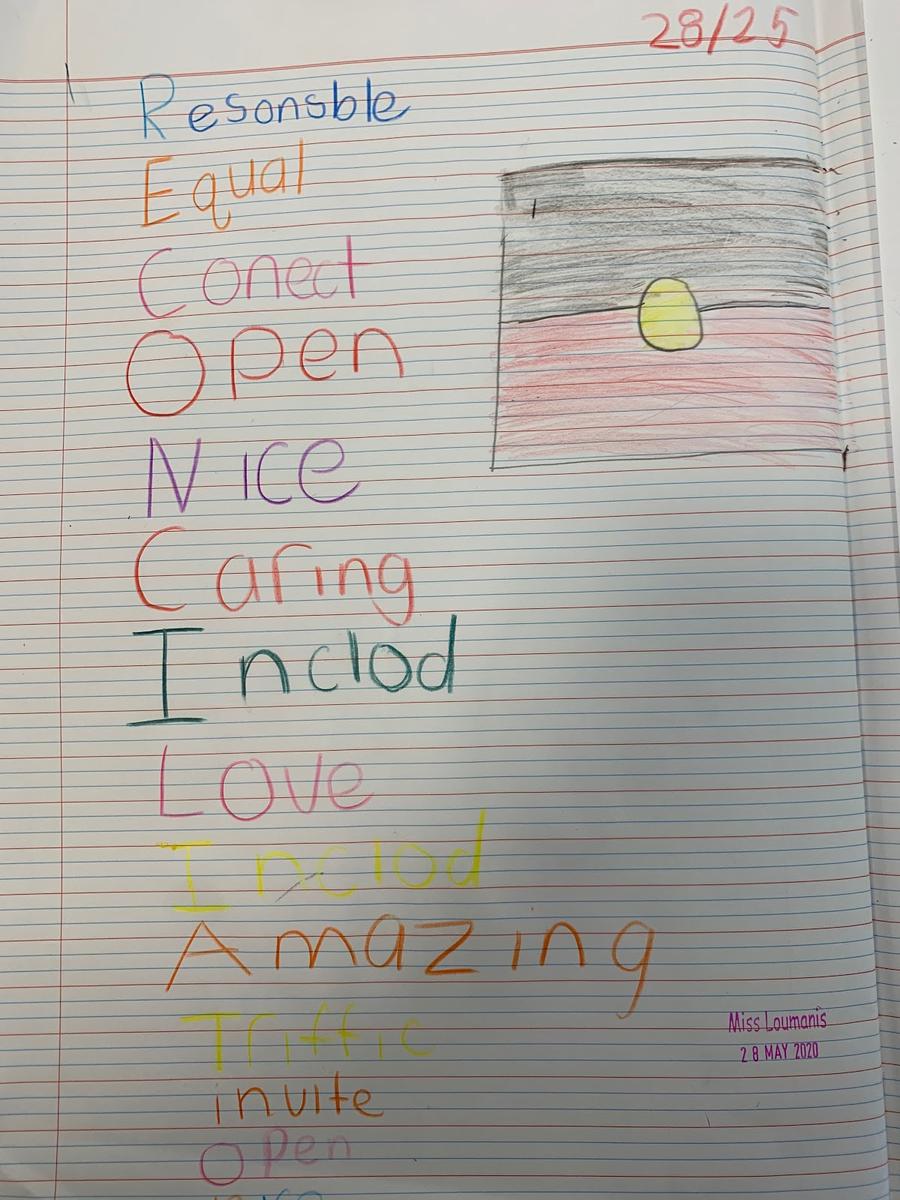 28/25
Resonsble
Equal
Conect
Open
Nice
Caring
Inclod
Love
Inclod
Amazing
Triffic
invite
Open
Miss Loumanis
28 MAY 2020